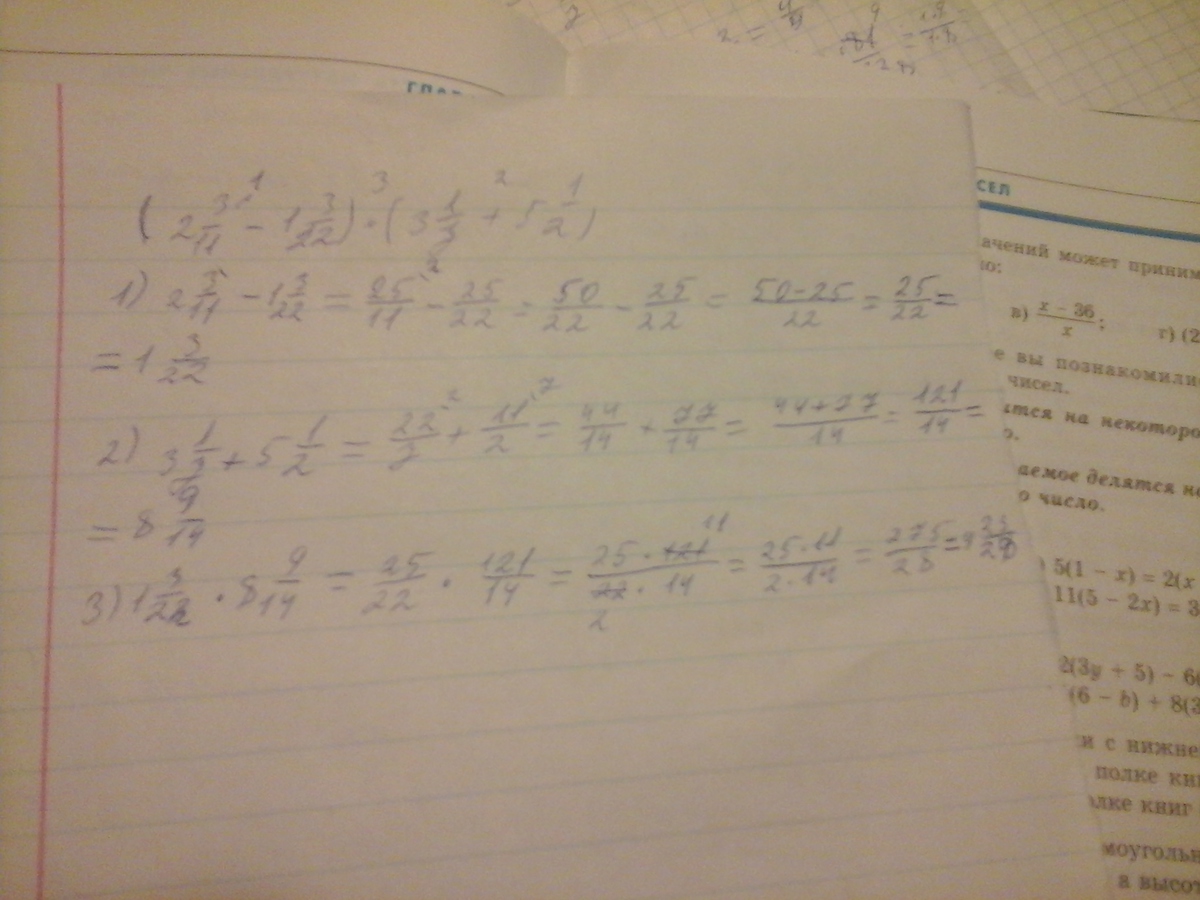 ГЛАВ
СЕЛ
(2 3/11 − 1 3/22) · (3 1/7 + 5 1/2)
1) 2 3/11 − 1 3/22 = 25/11 − 25/22 = 50/22 − 25/22 = 50−25/22 = 25/22 =
= 1 3/22
2) 3 1/7 + 5 1/2 = 22/7 + 11/2 = 44/14 + 77/14 = 44+77/14 = 121/14 =
= 8 9/14
3) 1 3/22 · 8 9/14 = 25/22 · 121/14 = 25 · 121/22 · 14 = 25 · 11/2 · 14 = 275/28 = 9 23/28
ачений может принима
ю:
в) x − 36/x; г) (2
е вы познакомились
чисел.
ятся на некоторо
о.
аемое делятся на
о число.
) 5(1 − x) = 2(x
11(5 − 2x) = 3
2(3y + 5) − 6(
(6 − b) + 8(3
и с нижне
полке кни
олке книг
моугольн
а высот